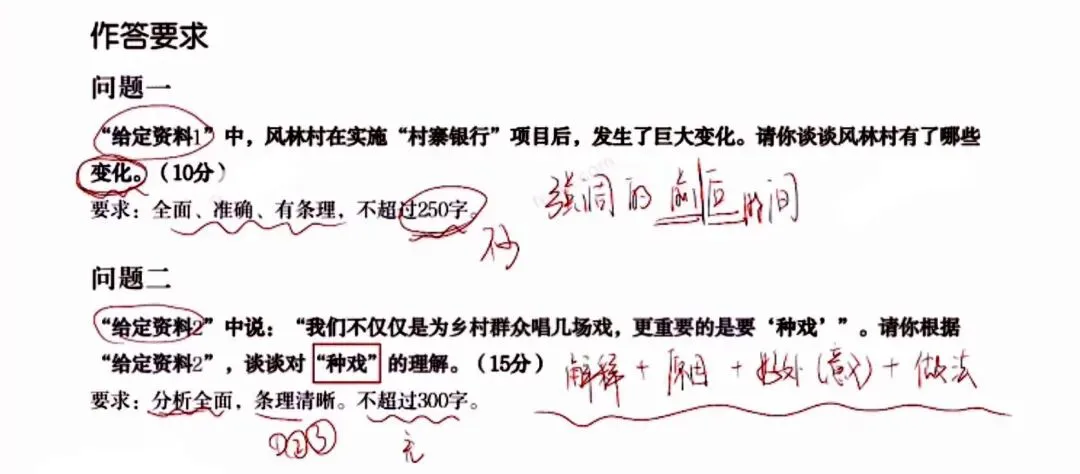 作答要求
问题一
“给定资料1”中，风林村在实施“村寨银行”项目后，发生了巨大变化。请你谈谈风林村有了哪些
变化。（10分）
要求：全面、准确、有条理，不超过250字。
强调的前后时间
问题二
“给定资料2”中说：“我们不仅仅是为乡村群众唱几场戏，更重要的是要‘种戏’”。请你根据
“给定资料2”，谈谈对“种戏”的理解。（15分）
解释+原因+好处(意义)+做法
要求：分析全面，条理清晰。不超过300字。
①②③